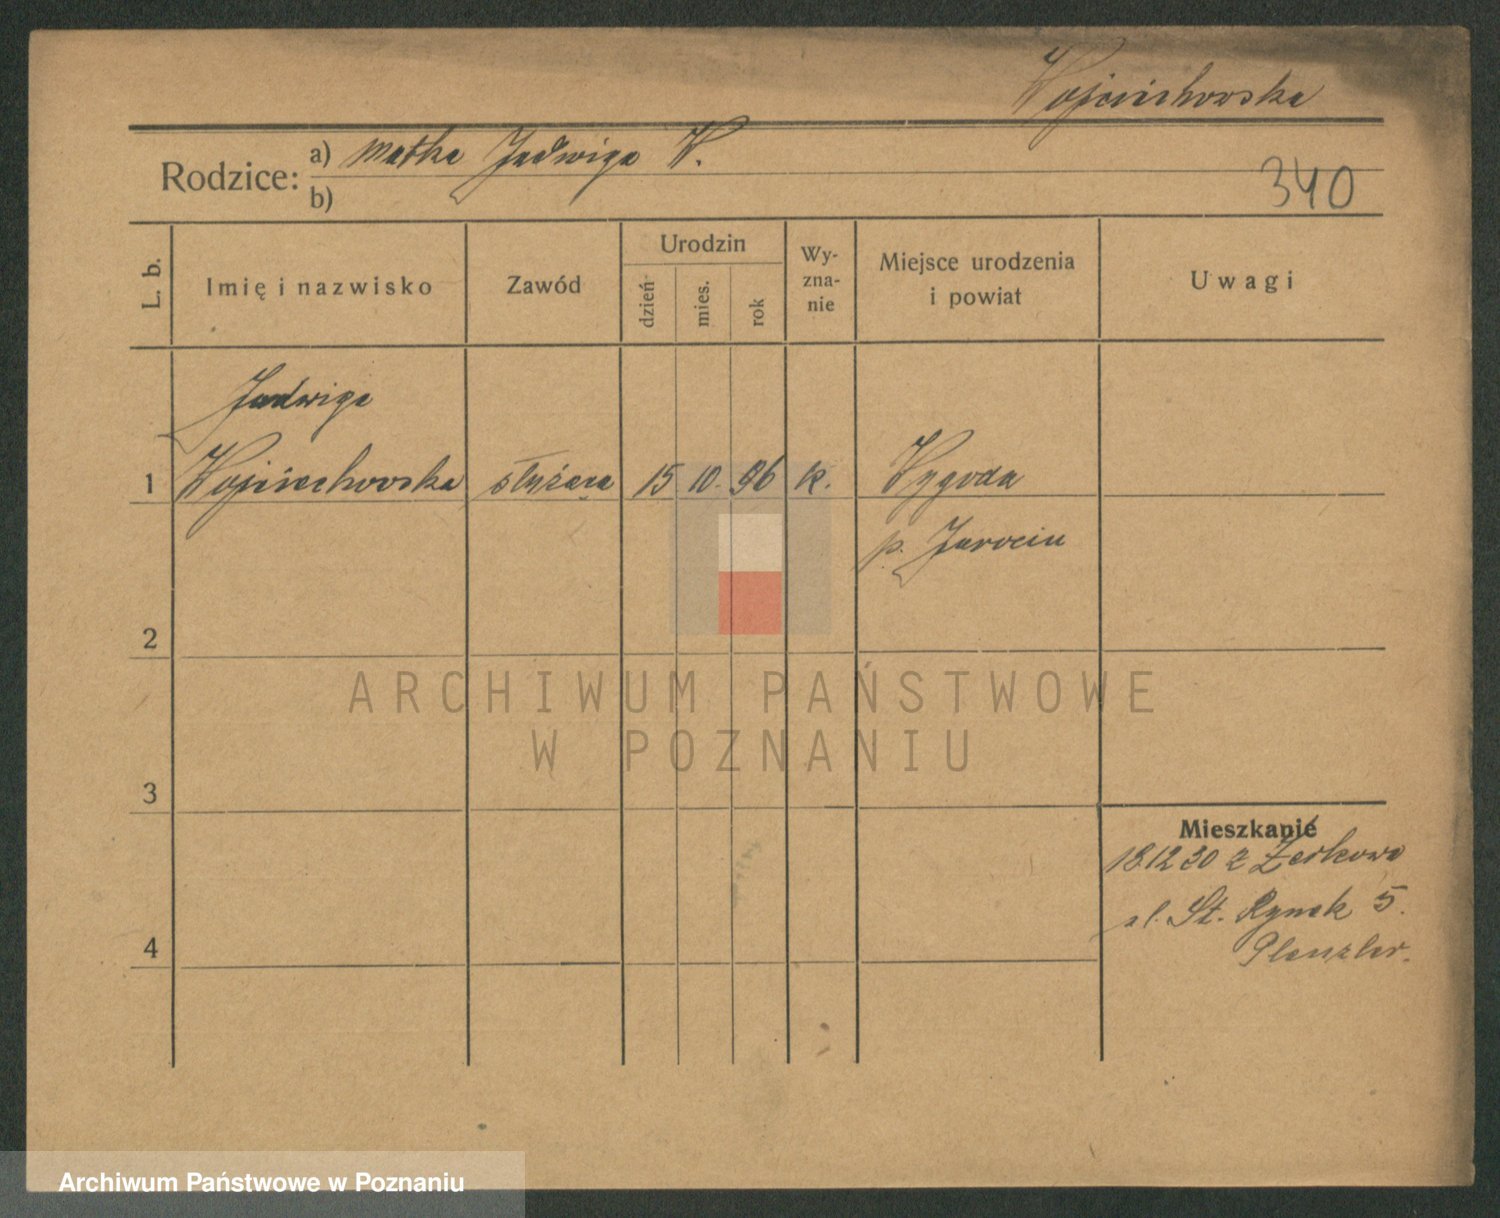 Wojciechowska
Rodzice: a) matka Jadwiga W.
b)
340
L. b.
Imię i nazwisko
Zawód
Urodzin
dzień
mies.
rok
Wy-
zna-
nie
Miejsce urodzenia
i powiat
Uwagi
Jadwiga
1 Wojciechowska służąca 15 10. 96 k. Wygoda
p. Jarocin
2
3
4
Mieszkanie
18 12 30 z Żerkowa
ul. St. Rynek 5.
ARCHIWUM PAŃSTWOWE
W POZNANIU
Archiwum Państwowe w Poznaniu